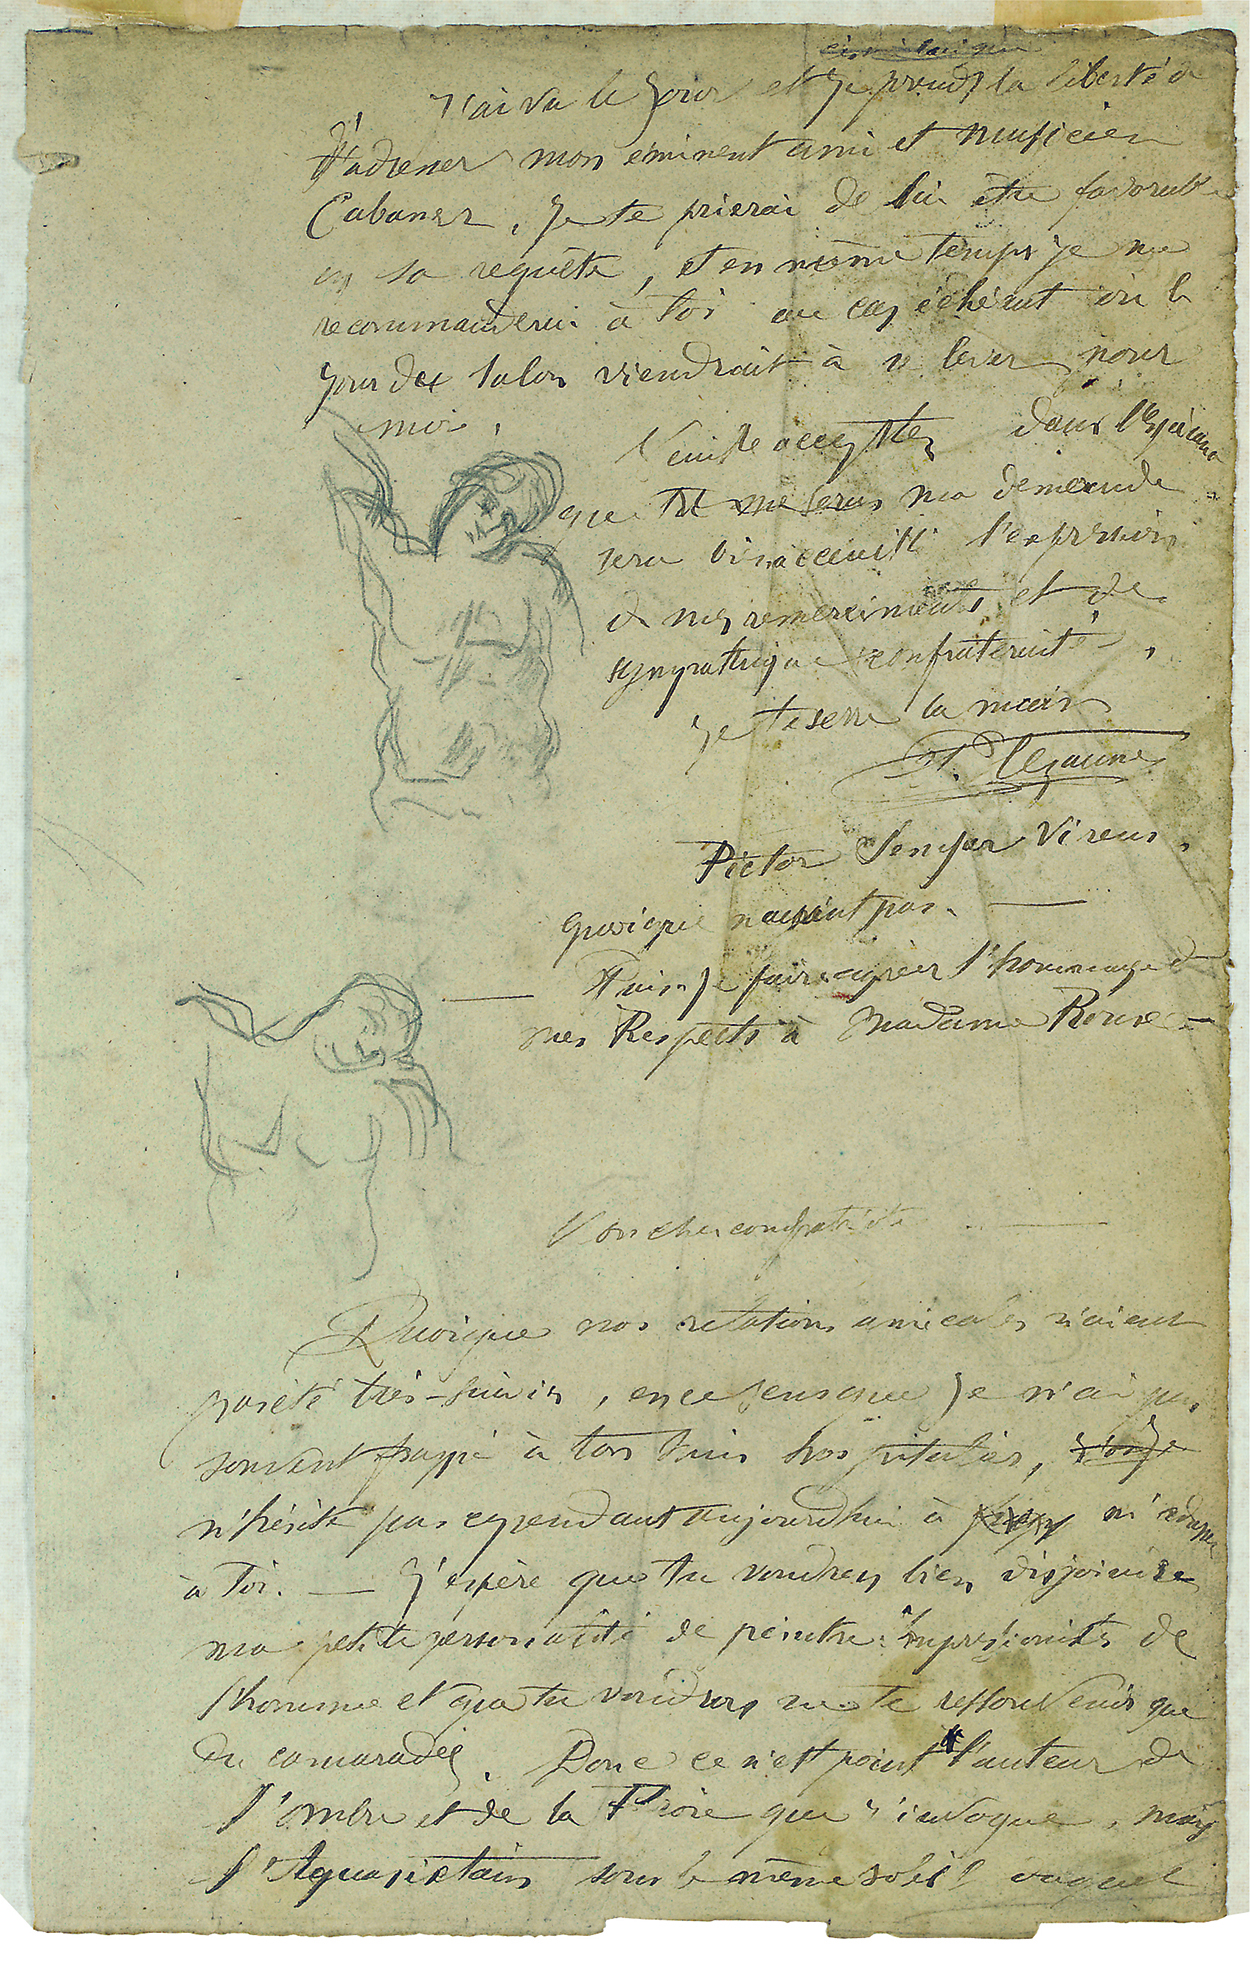 j'ai vu le jour et je prends la liberté de
t'adresser mon éminent ami et musicien
Cabaner. Je te prierai de lui être favorable
en sa requête, et en même temps je me
recommanderai à toi au cas échéant où le
jour du salon viendrait à se lever pour
moi.
Veuille accepter dans l'espérance
que tu me seras ma demande
sera bien accueilli l'expression
de mes remerciments et de
sympathique confraternité.
Je te serre la main
P. Cezanne
Pictor Semper Virens.
quoique n'ayant pas.
Puis-je faire agréer l'hommage de
mes Respects à Madame Roux
Mon cher compatriote
Quoique nos relations amicales n'aient
pas été très-suivies, en ce sens que je n'ai pas
souvent frappé à ton huis hospitalier, je
n'hésite pas cependant aujourd'hui à m'adresser
à toi. — J'espère que tu voudras bien disjoindre
ma petite personalité de peintre impressioniste de
l'homme et que tu voudras ne te ressouvenir que
du camarade. Donc ce n'est point l'auteur de
l'ombre et de la Proie que j'invoque, mais
l'Aquasixtain sous le même soleil duquel